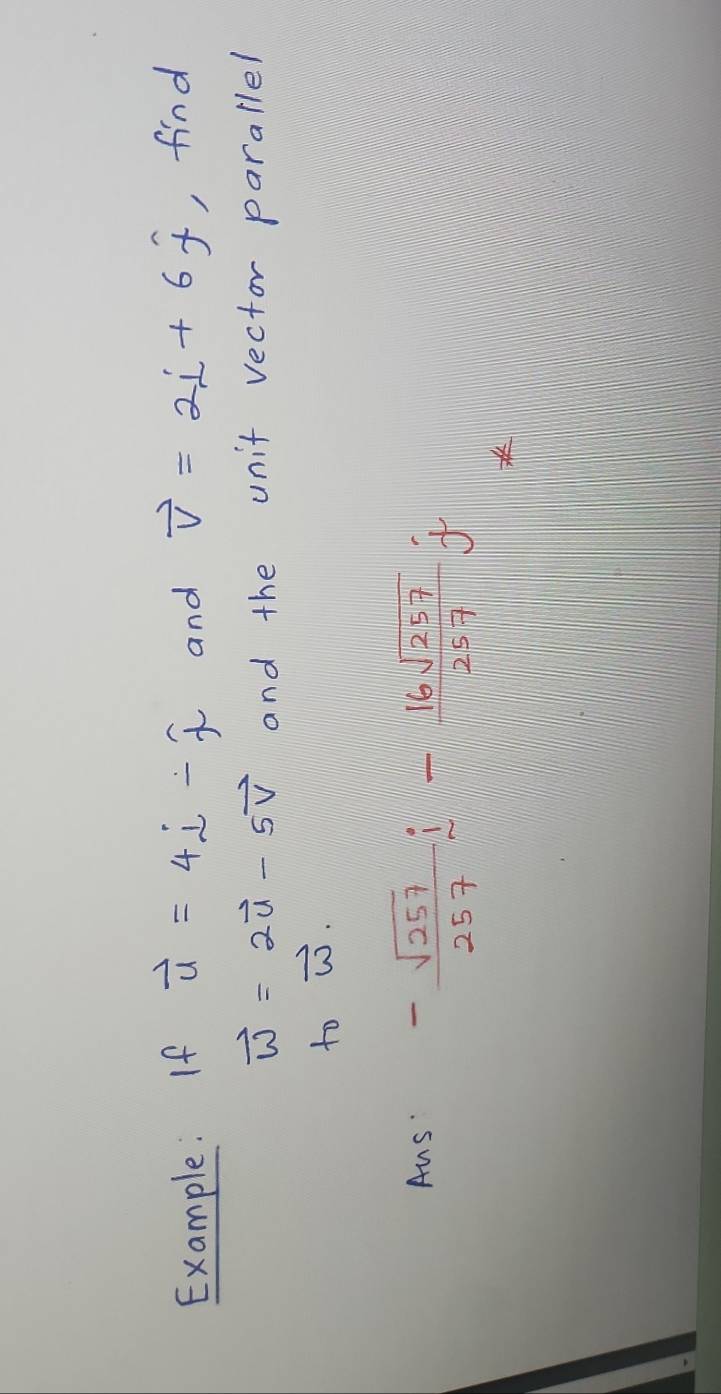 Example: If u⃗ = 4i̲ - ĵ and v⃗ = 2i̲ + 6ĵ, find
w⃗ = 2u⃗ - 5v⃗ and the unit vector parallel
to w⃗.
Ans: - √257/257 ḭ - 16√257/257 j *